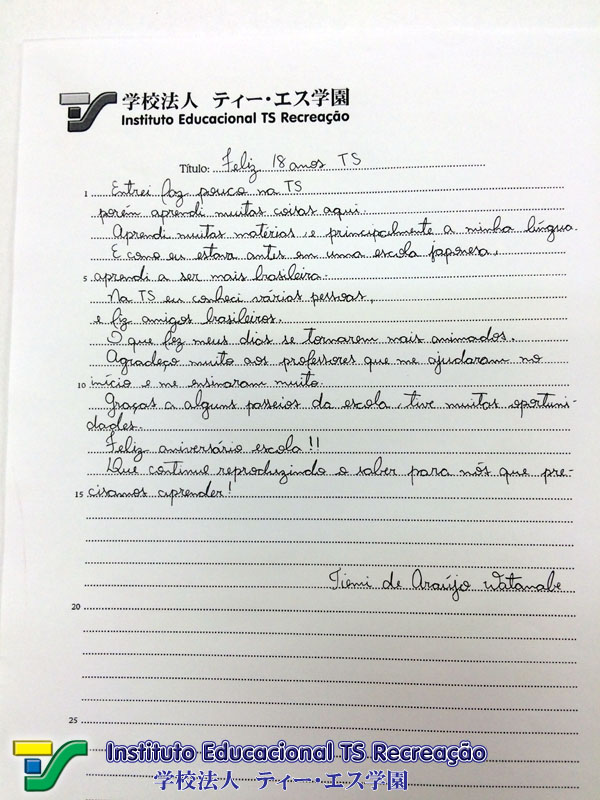 学校法人 ティー・エス学園
Instituto Educacional TS Recreação
Título: Feliz 18 anos TS
1 Entrei faz pouco na TS
porém aprendi muitas coisas aqui.
Aprendi muitas matérias, e principalmente a minha língua.
E como eu estava antes em uma escola japonesa,
5 aprendi a ser mais brasileira.
Na TS eu conheci várias pessoas,
e fiz amigos brasileiros.
O que fez meus dias se tornarem mais animados.
Agradeço muito aos professores que me ajudaram no
10 início e me ensinaram muito.
Graças a alguns passeios da escola, tive muitas oportuni-
dades.
Feliz aniversário escola!!
Que continue reproduzindo o saber para nós que pre-
15 cisamos aprender!
Tiemi de Araújo Watanabe
20
25
Instituto Educacional TS Recreação
学校法人 ティー・エス学園